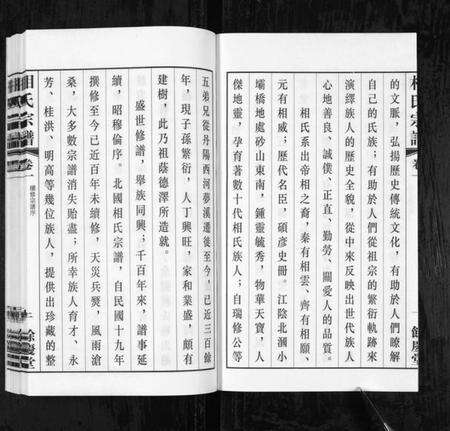 相氏宗譜
卷一
餘慶堂
的文脈，弘揚歷史傳統文化，有助於人們瞭解
自己的氏族；有助於人們從祖宗的繁衍軌跡來
演繹族人的歷史全貌，從中來反映出世代族人
心地善良、誠懊、正直、勤勞、關愛人的品質。
相氏系出帝相之裔，秦有相雲、齊有相願、
元有相威；歷代名臣，碩彥史冊。江陰北漍小
壩橋地處砂山東南，鍾靈毓秀，物華天寶，人
傑地靈，孕育著數十代相氏族人；自瑞修公等
五弟兄從丹陽西河夢溪遷後至今，已近三百餘
年，現子孫繁衍，人丁興旺，家和業盛，頗有
建樹，此乃祖蔭德澤所造就。
盛世修譜，舉族同興；千百年來，譜事延
續，昭穆倫序。北國相氏宗譜，自民國十九年
撰修至今已近百年未續修，天災兵燹，風雨滄
桑，大多數宗譜消失殆盡；所幸族人育才、永
芳、桂洪、明高等幾位族人，提供出珍藏的整
相氏宗譜
卷一
續修宗譜序
二
餘慶堂